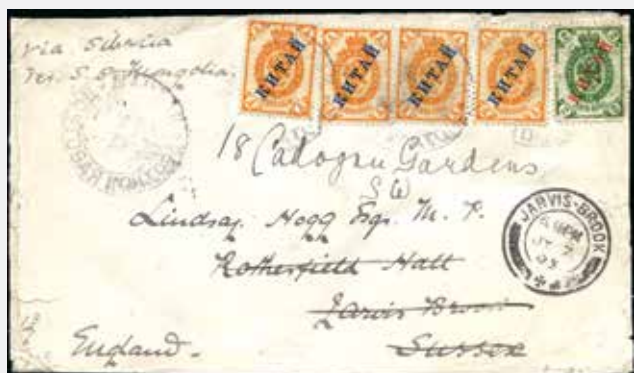 via Siberia
Per S. S. Mongolia
КИТАЙ
КИТАЙ
КИТАЙ
КИТАЙ
КИТАЙ
18 Cadogan Gardens
S W
Lindsay Hogg Esqr. M. P.
Rotherfield Hall
Jarvis Brook
Sussex
England.
JARVIS-BROOK
PM
JY 7
03